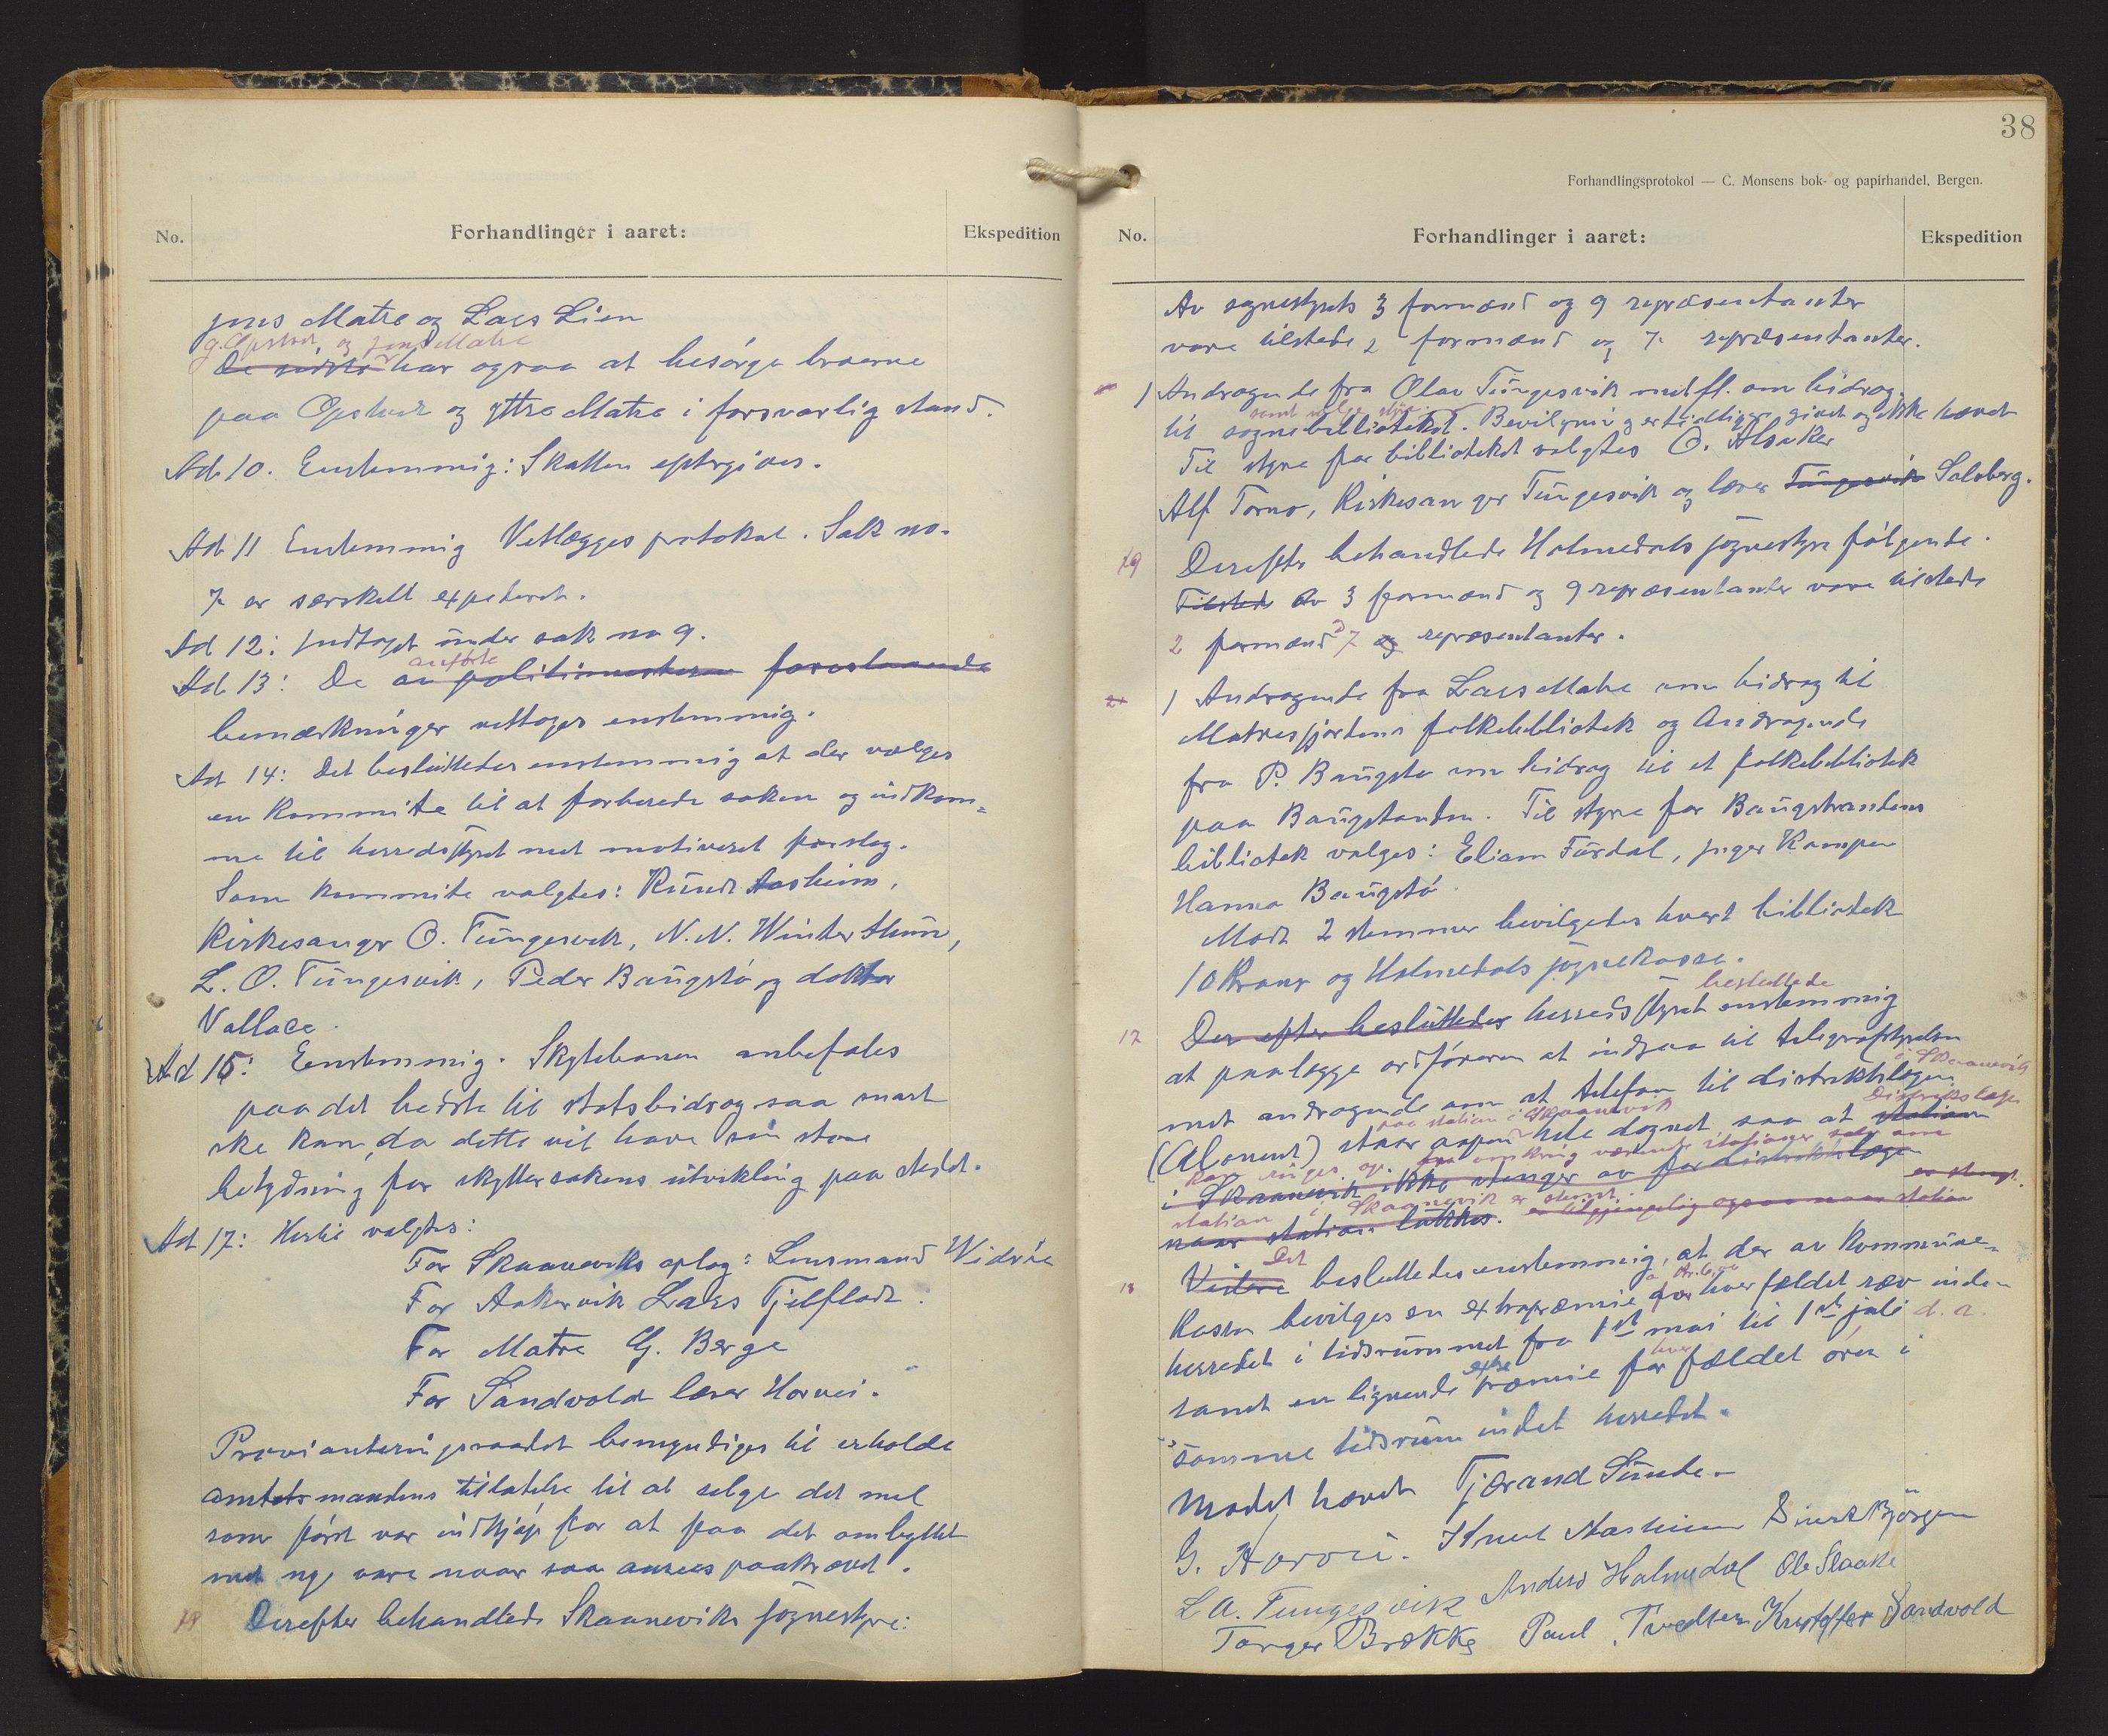 No.
Forhandlinger i aaret:
Ekspedition
Jens Matre og Lars Lien
G. Opstvet og Jens Matre
De sidste har ogsaa at besørge broerne
paa Opstvet og yttre Matre i forsvarlig stand.
Ad 10. Enstemmig: Skatten eftergives.
Ad 11 Enstemmig Vetlægges protokol. Sak no.
7 er særskilt expederet.
Ad 12: Indtaget under sak no 9.
anførte
Ad 13: De av politimesteren foreslaaede
bemærkninger vettoges enstemmig.
Ad 14: Det besluttedes enstemmig at der vælges
en kommite til at forberede saken og indkom=
me til herredsstyret met motiveret forslag.
Som kommite valgtes: Knut Aasheim,
Kirkesanger O. Tungesvik, N. N. Winter Hun,
L. O. Tungesvik, Peder Baugstø og doktor
Vallace.
Ad 15: Eenstemmig. Skytebanen anbefales
paa det bedste til statsbidrag saa snart
ske kan, da dette vil have sin store
betydning for skyttersakens utvikling paa stedet.
Ad 17: Hertil valgtes:
For Skaaneviks oplag: Lensmand Widvei
For Aakervik Lars Fjelflodt.
For Matre G. Berge
For Sandvold lærer Horvei.
Provianteringsraadet bemyndiges til erholde
amtsmandens tillatelse til at selge det mel
som først var indkjøp for at faa det ombyttet
met ny vare naar saa ansees paakrævet.
19 Derefter behandlede Skaaneviks sognestyre:
38
Forhandlingsprotokol — C. Monsens bok- og papirhandel, Bergen.
No.
Forhandlinger i aaret:
Ekspedition
Av sognestyrets 3 formænd og 9 repræsentanter
vare tilstede 2 formænd og 7 repræsentanter.
1 Andragende fra Olav Tungesvik met fl. om bidrag
samt velge styre
til sognebibliotekt. Bevilgning er tidligere givet og ikke hævet
Til styre for bibliotekt valgtes O. Alsaker
Alf Torno, Kirkesanger Tungesvik og lærer Tungesvik Salvberg.
19 Derefter behandlede Holmedals sognestyre følgende.
Tilstede Av 3 formænd og 9 repræsentanter vare tilstede
2 formænd 7 og repræsentanter.
1 Andragende fra Lars Matre om bidrag til
Matresfjordens folkebibliotek og Andragende
fra P. Baugstø om bidrag til et folkebibliotek
paa Baugstanden. Til styre for Baugstrandens
bibliotek valges: Eliam Furdal, Inger Kampen
Hanna Baugstø
Mod 2 stemmer bevilgedes hvert bibliotek
10 Kroner og Holmedals sognekasse.
besluttede
17 Der efter besluttedes herredsstyret enstemmig
at paalægge ordføreren at indgaa til telegrafstyrelsen
i Skaanevik
met andragende om at telefon til distriktslægen
paa station i Skaanevik
Distriktslægen
(Abonent) staar aapen hele dognet saa at station
kan ringes op fra omkring værende stationer selv om
i Skaanevik ikke stenger av for distriktslægen
station i Skaanevik er stengt
er stengt.
naar station lukkes. er tilgjengelig ogsaa naar station
Det
18 Videre besluttedes enstemmig, at der av kommune-
kassen bevilges en extrapræmie for hver fældet ræv inden
herredet i tidsrummet fra 1st mai til 1st juli d. a.
hver
samt en lignende extrapræmie for fældet ørn i
samme tidsrum indet herredet.
Mødet hævet Tjerand Sunde.
G. Horvei. Knut Aasheim Sivert Bjørgen
L A. Tungesvik Anders Holmedal Ole Slaake
Torger Brække Paul Tvedten Kristoffer Sandvold